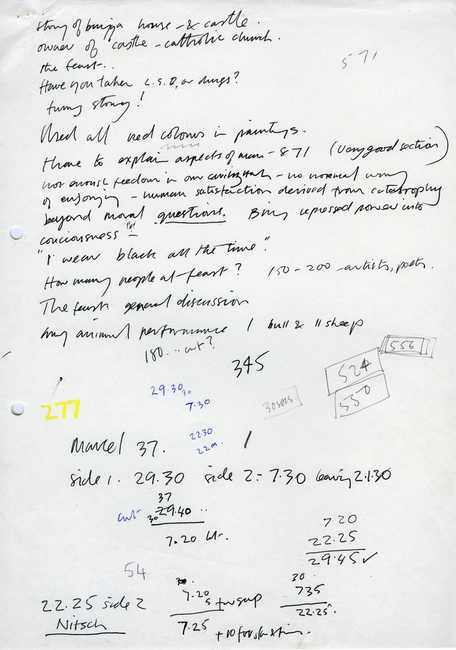 story of buying house & castle.
owner of castle - catholic church.
the feast..
571
Have you taken L.S.D, or drugs?
funny story!
Used all red colours in paintings.
those to explain aspects of man - 871 (very good section)
not enough freedom in our - no normal way
of enjoying - human satisfaction derived from catastrophy
beyond moral questions. Bring repressed power into
conciousness"
"I wear black all the time".
How many people at feast? 150-200 - artists, poets.
The feast general discussion
any animal performance 1 bull & 11 sheep
180... cut?
345
524
556
550
29.30
7.30
30secs
277
Marcel 37.
2230
22m
1
side 1. 29.30 side 2 = 7.30 leaving 21.30
37
cut 30 29.40
7.20 left.
7.20
22.25
29.45 ✓
54
22.25 side 2
Nitsch
7.20
5 for gap
7.25
+10 for
20
735
22.25.